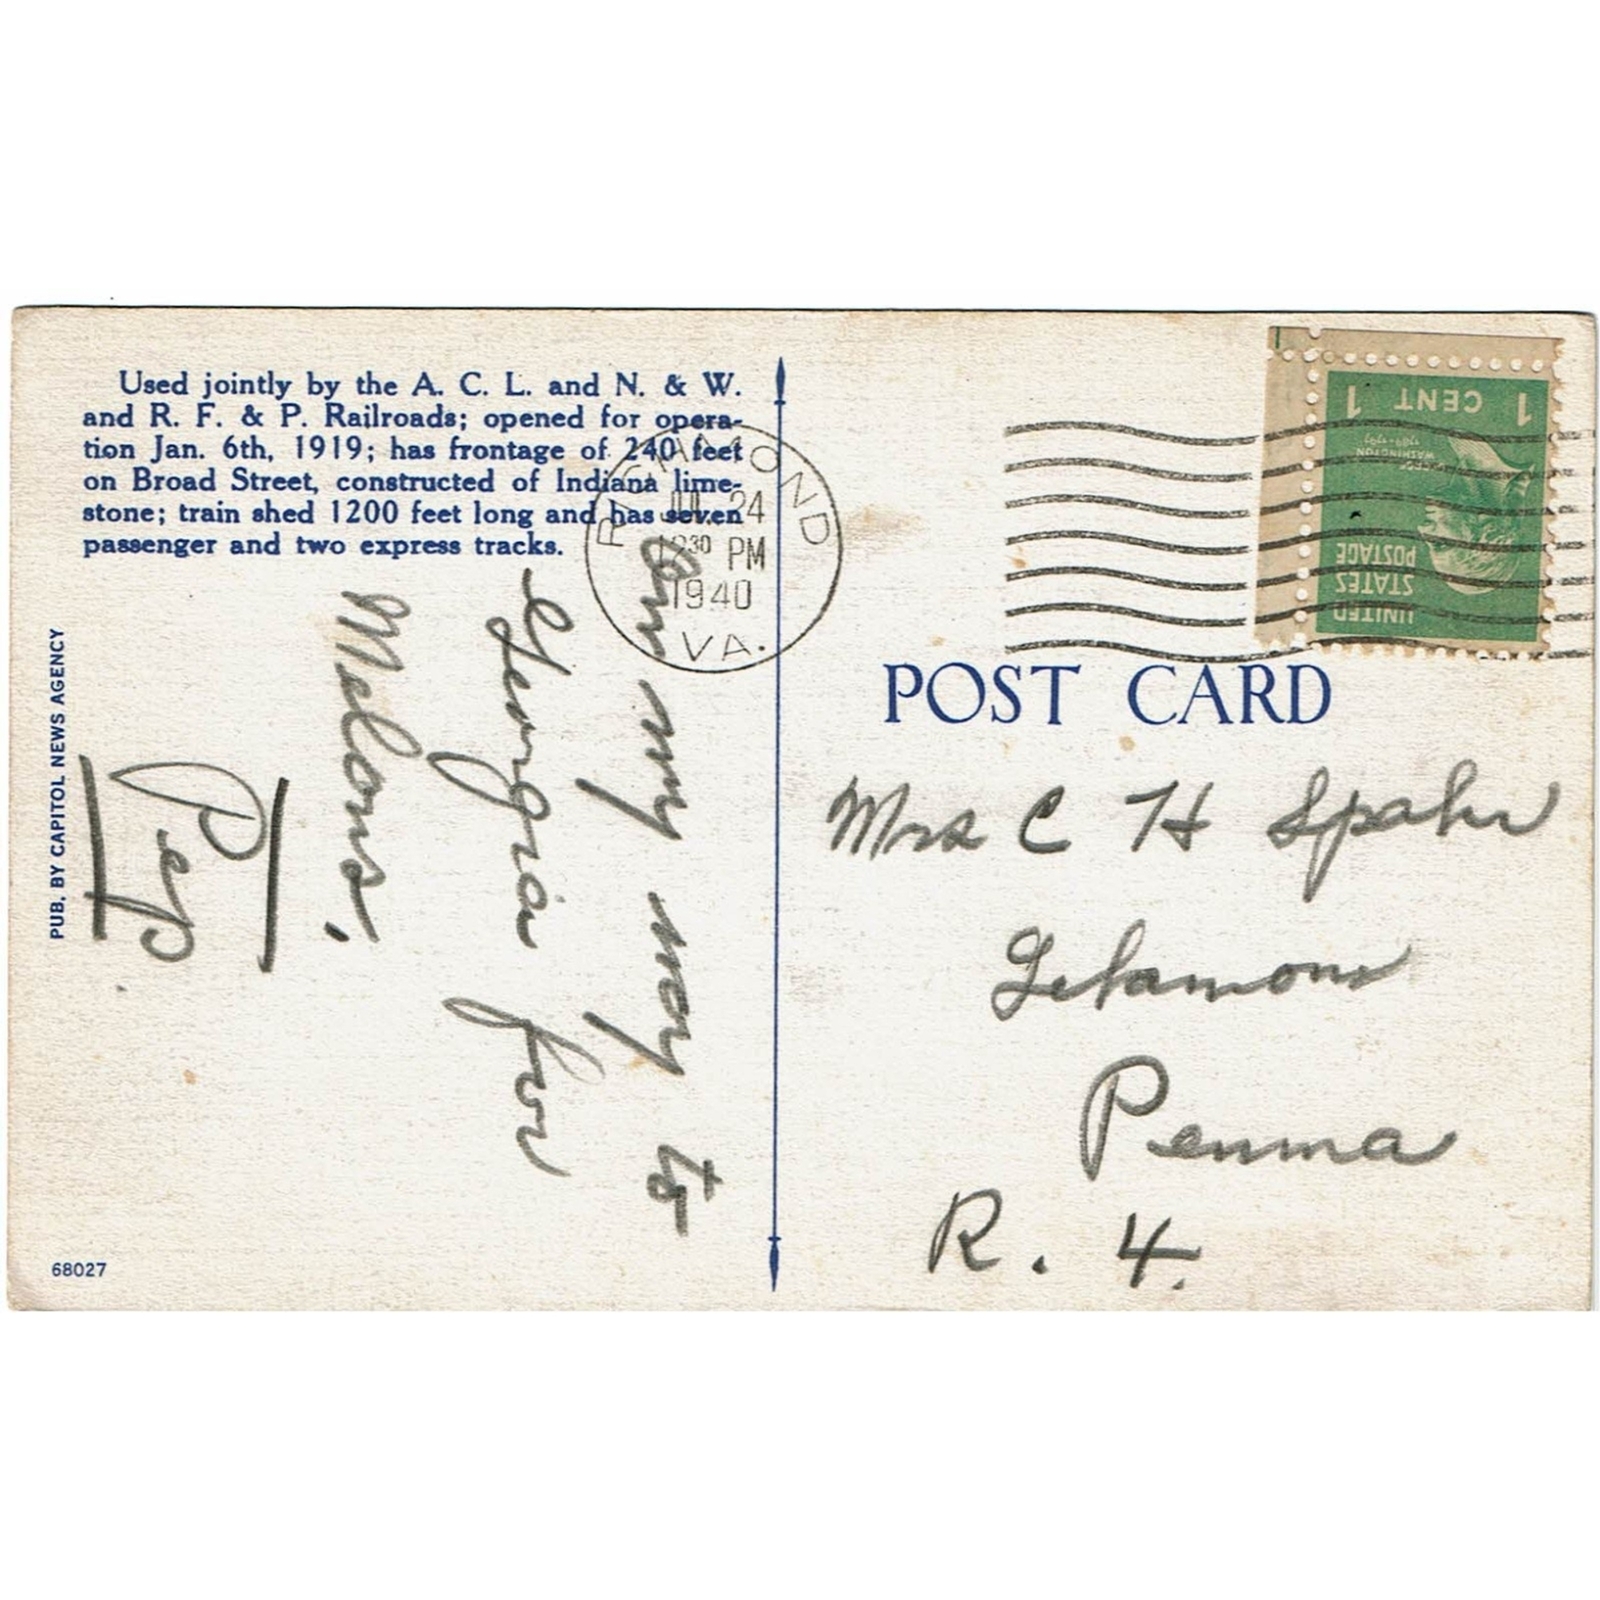 Used jointly by the A. C. L. and N. & W.
and R. F. & P. Railroads; opened for opera-
tion Jan. 6th, 1919; has frontage of 240 feet
on Broad Street, constructed of Indiana lime-
stone; train shed 1200 feet long and has seven
passenger and two express tracks.
On my way to
Georgia for
Melons,
Pep.
PUB. BY CAPITOL NEWS AGENCY
68027
RICHMOND
JUL 24
30 PM
1940
VA.
1 CENT 1
WASHINGTON
UNITED
STATES
POSTAGE
POST CARD
Mrs C H Spahr
Penna
R. 4.